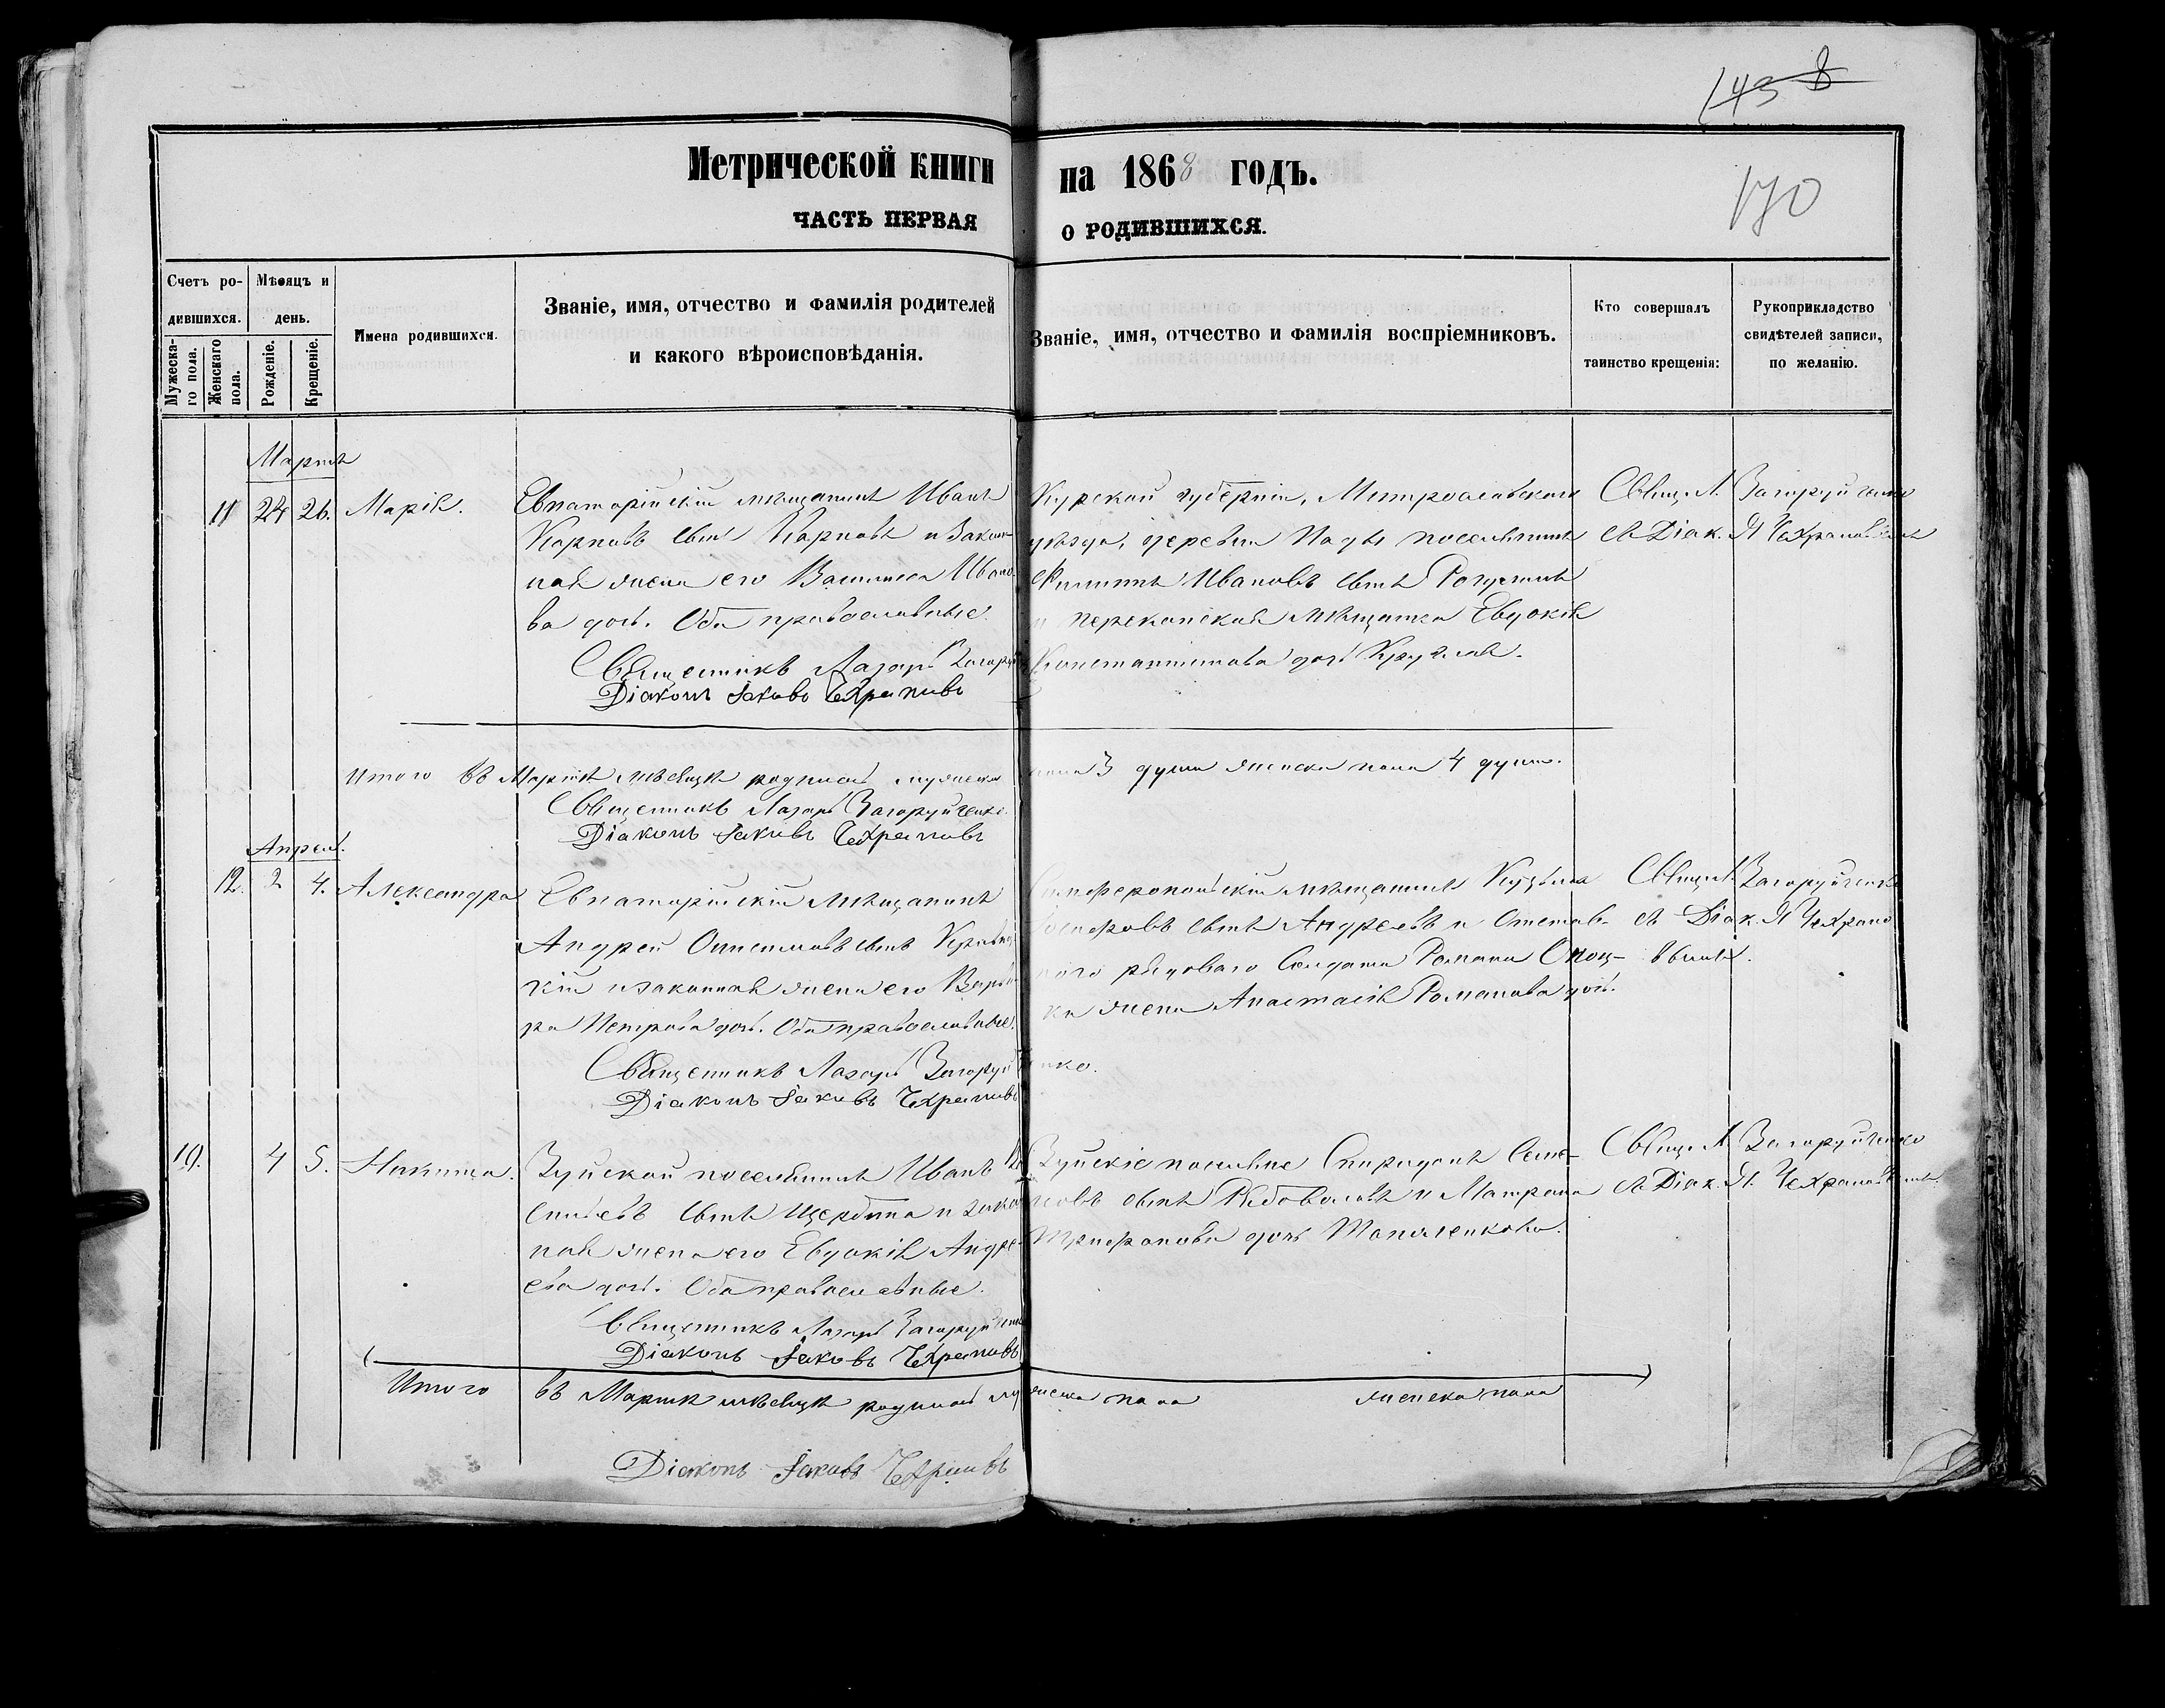 143 8
170
Метрической книги на 1868 годъ.
ЧАСТЬ ПЕРВАЯ О РОДИВШИХСЯ.
Счетъ ро-
дившихся.
Мужеска-
го пола.
Женскаго
пола.
Мѣсяцъ и
день.
Рожденіе.
Крещеніе.
Имена родившихся.
Званіе, имя, отчество и фамилія родителей
и какого вѣроисповѣданія.
Званіе, имя, отчество и фамилія воспріемниковъ.
Кто совершалъ
таинство крещенія:
Рукоприкладство
свидѣтелей записи,
по желанію.
Мартъ
11 24 26. Марія.
Евпаторійскій мѣщанинъ Иванъ
Карповъ сынъ Карповъ и закон-
ная жена его Василиса Ивано-
ва дочь. Оба православные.
Священникъ Лазарь Загоруй
Діаконъ Іаковъ Чехрановъ
Курской губерніи,
уѣзда, деревни поселянинъ
Филиппъ Ивановъ сынъ
и перекопская мѣщанка Евдокія
Константинова дочь
Свящ. Л. Загоруйченко
съ Діак. Я Чехрановымъ
Итого въ Мартѣ мѣсяцѣ родилось мужеска пола 3 души женска пола 4 души.
Священникъ Лазарь Загоруйченко
Діаконъ Іаковъ Чехрановъ
Апрель.
12. 2 4. Александра
Евпаторійскій мѣщанинъ
Андрей сынъ
и законная жена его Варва
ра Петрова дочь. Оба православные.
Священникъ Лазарь Загоруйченко.
Діаконъ Іаковъ Чехрановъ
Симферопольскій мѣщанинъ Кузьма
сынъ Андреевъ и Отстав-
ного рядоваго Солдата Романа
жена Анастасія Романова дочь.
Свящ. Л. Загоруйченко
съ Діак. Я Чехрано
вымъ.
19. 4 5. Никита.
Зуйской поселянинъ Иванъ
сынъ Щербина и закон
ная жена его Евдокія Андре-
ева дочь. Оба православные.
Священникъ Лазарь Загоруйченко
Діаконъ Іаковъ Чехрановъ
Зуйскіе поселяне Спиридонъ Семе-
новъ сынъ и Матрона
Трифонова дочь
Свящ. Л. Загоруйченко
съ Діак. Я. Чехрановымъ.
Итого въ Мартѣ мѣсяцѣ родилось мужеска пола женска пола
Діаконъ Іаковъ Чехрановъ